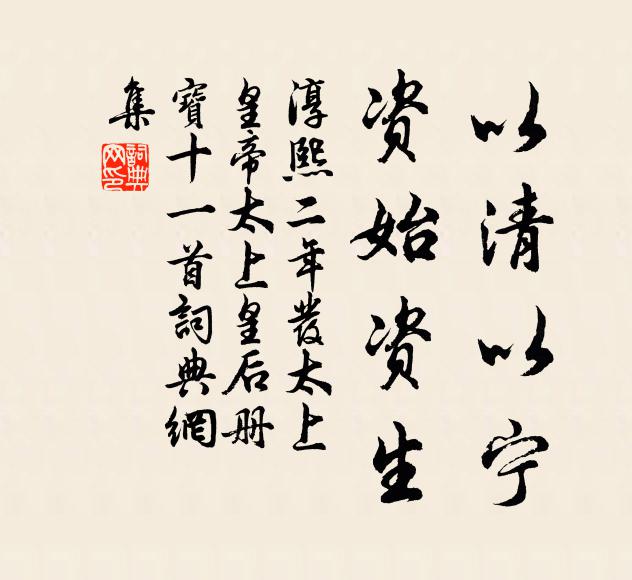 以清以宁
资始资生
淳熙二年發太上
皇帝太上皇后册
寶十一首詞典網
集
詞典網印